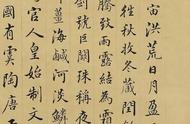 宙洪荒日月盈
往秋收冬藏閏
致雨露結為
劍號巨闕珠稱夜
薑海鹹河淡鱗
官人皇始制文
國有虞陶唐